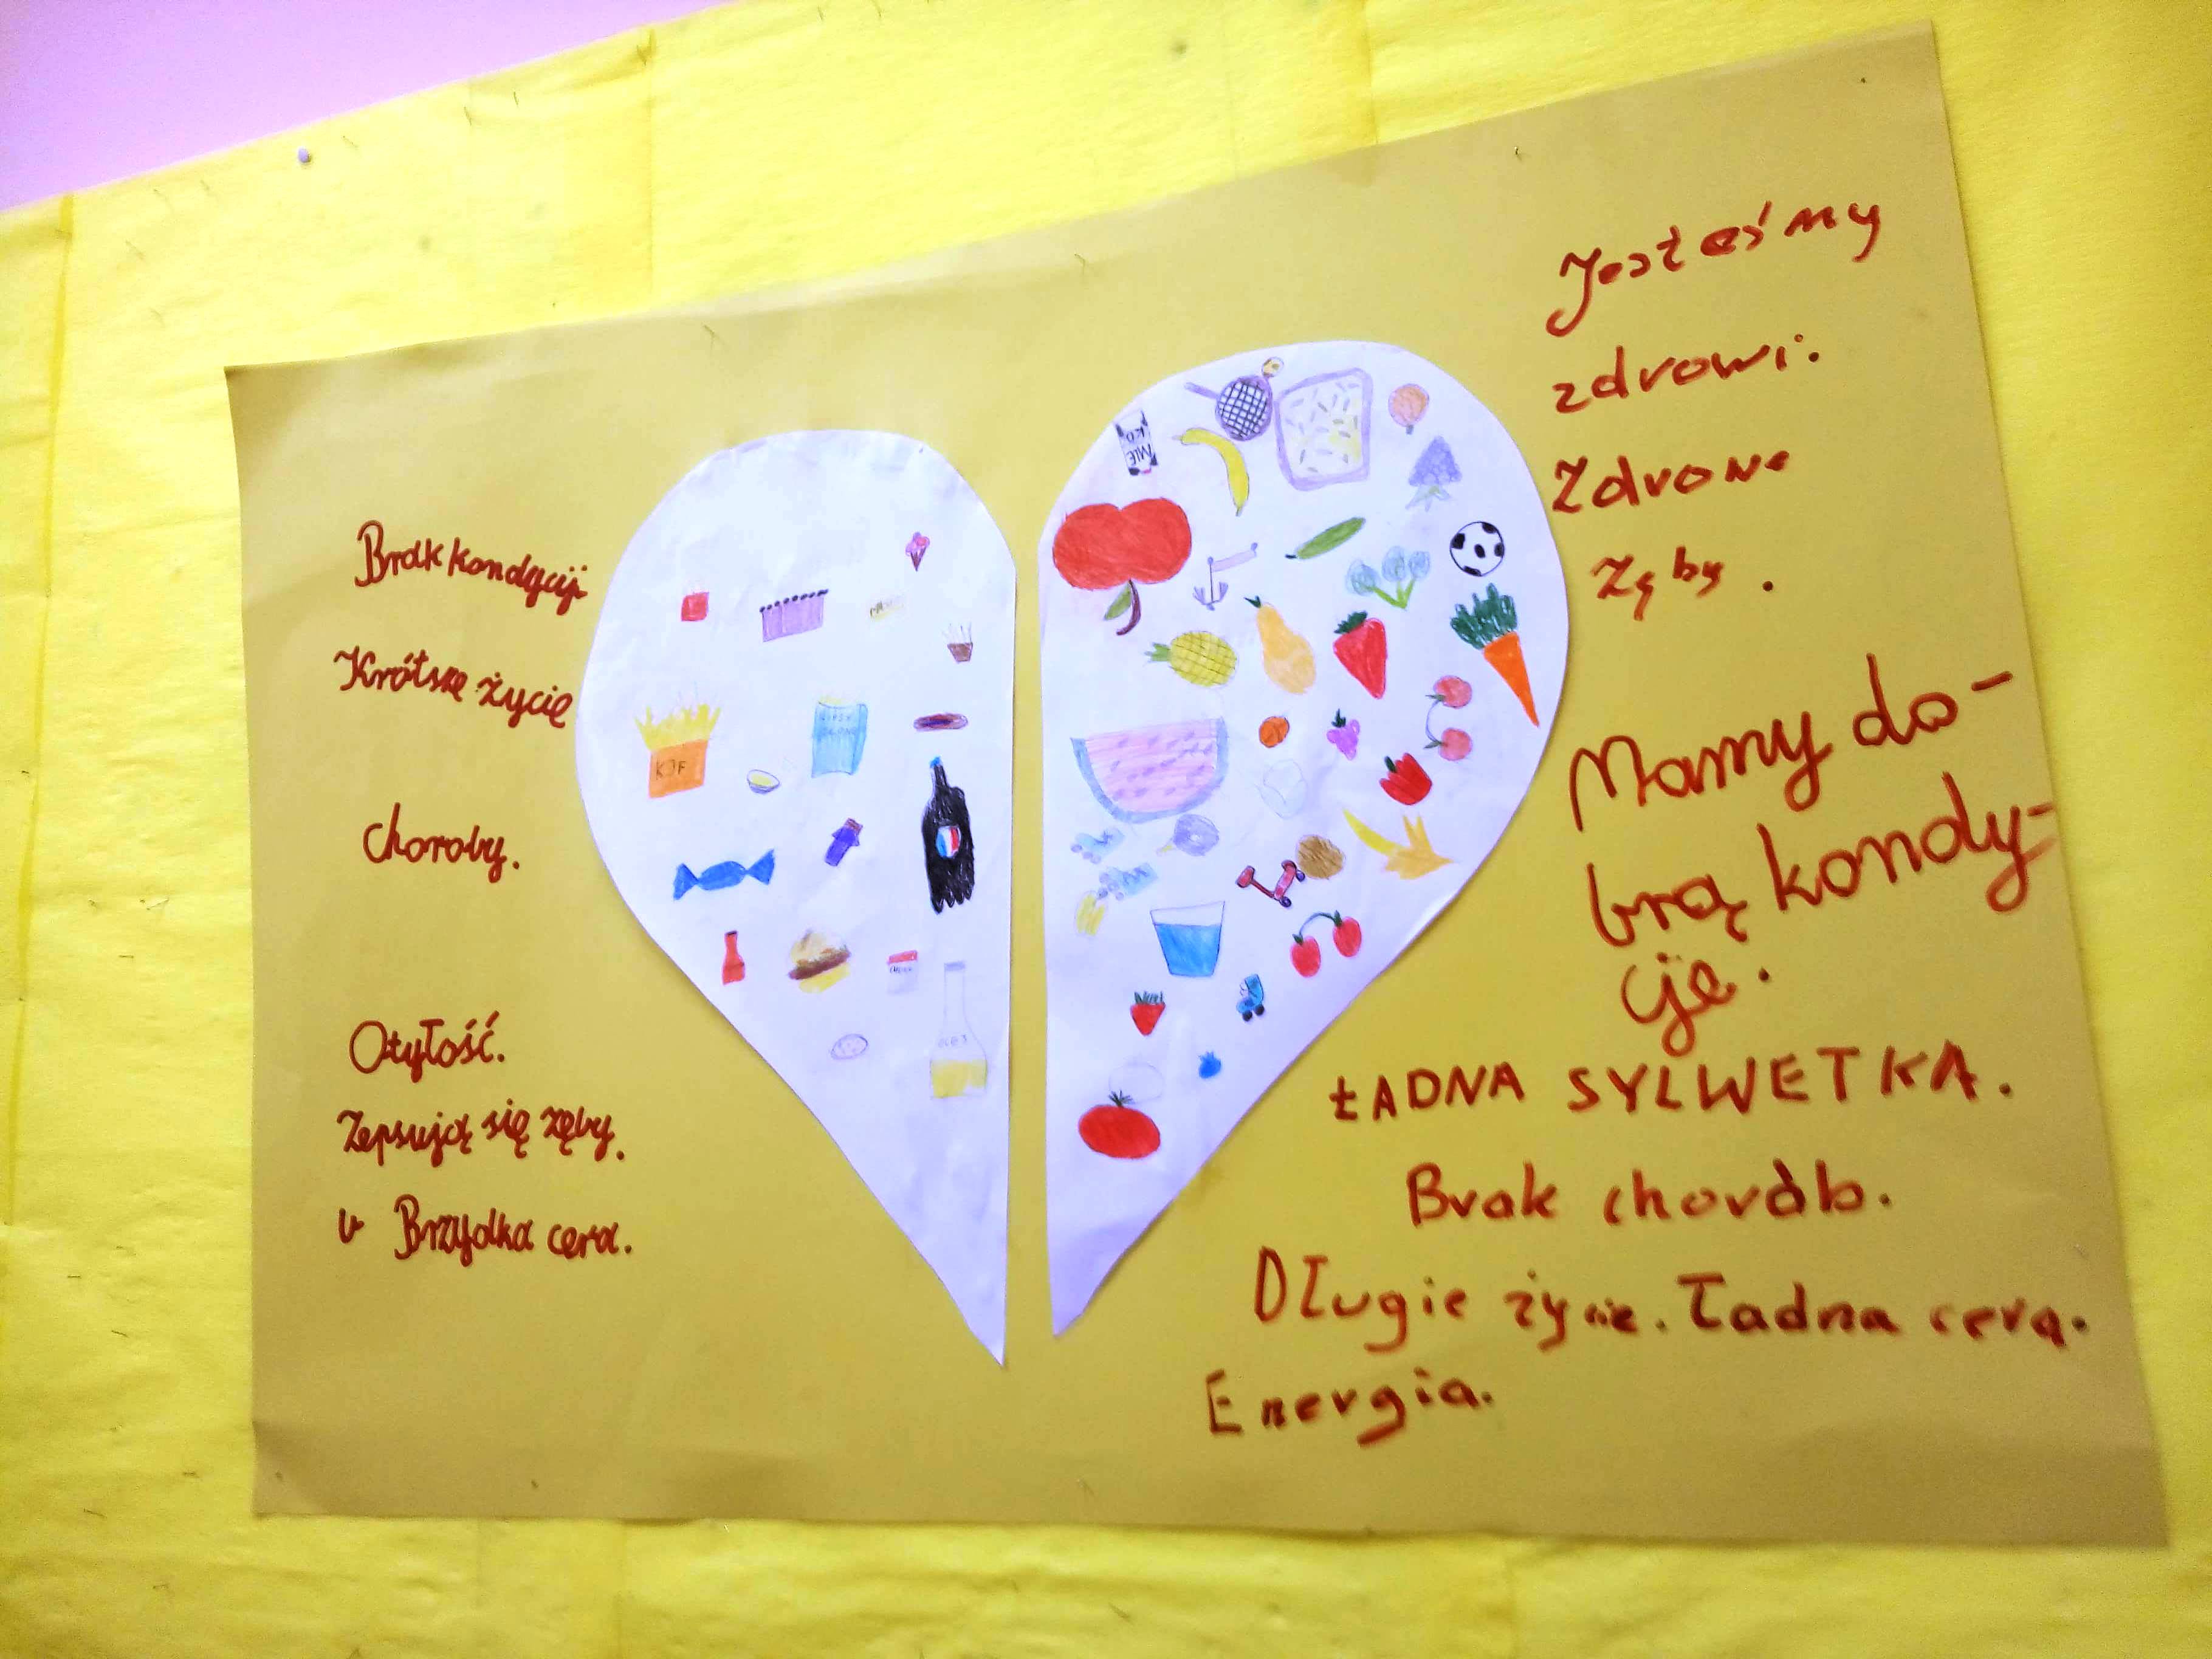 Brak kondycji
Krótsze życie
Choroby.
Otyłość.
Zepsują się zęby.
Brzydka cera.
KJF
MLE
KO
Jesteśmy
zdrowi.
Zdrowe
Zęby.
Mamy do-
brą kondy-
cje.
ŁADNA SYLWETKA.
Brak chorób.
Długie życie. Ładna cera.
Energia.